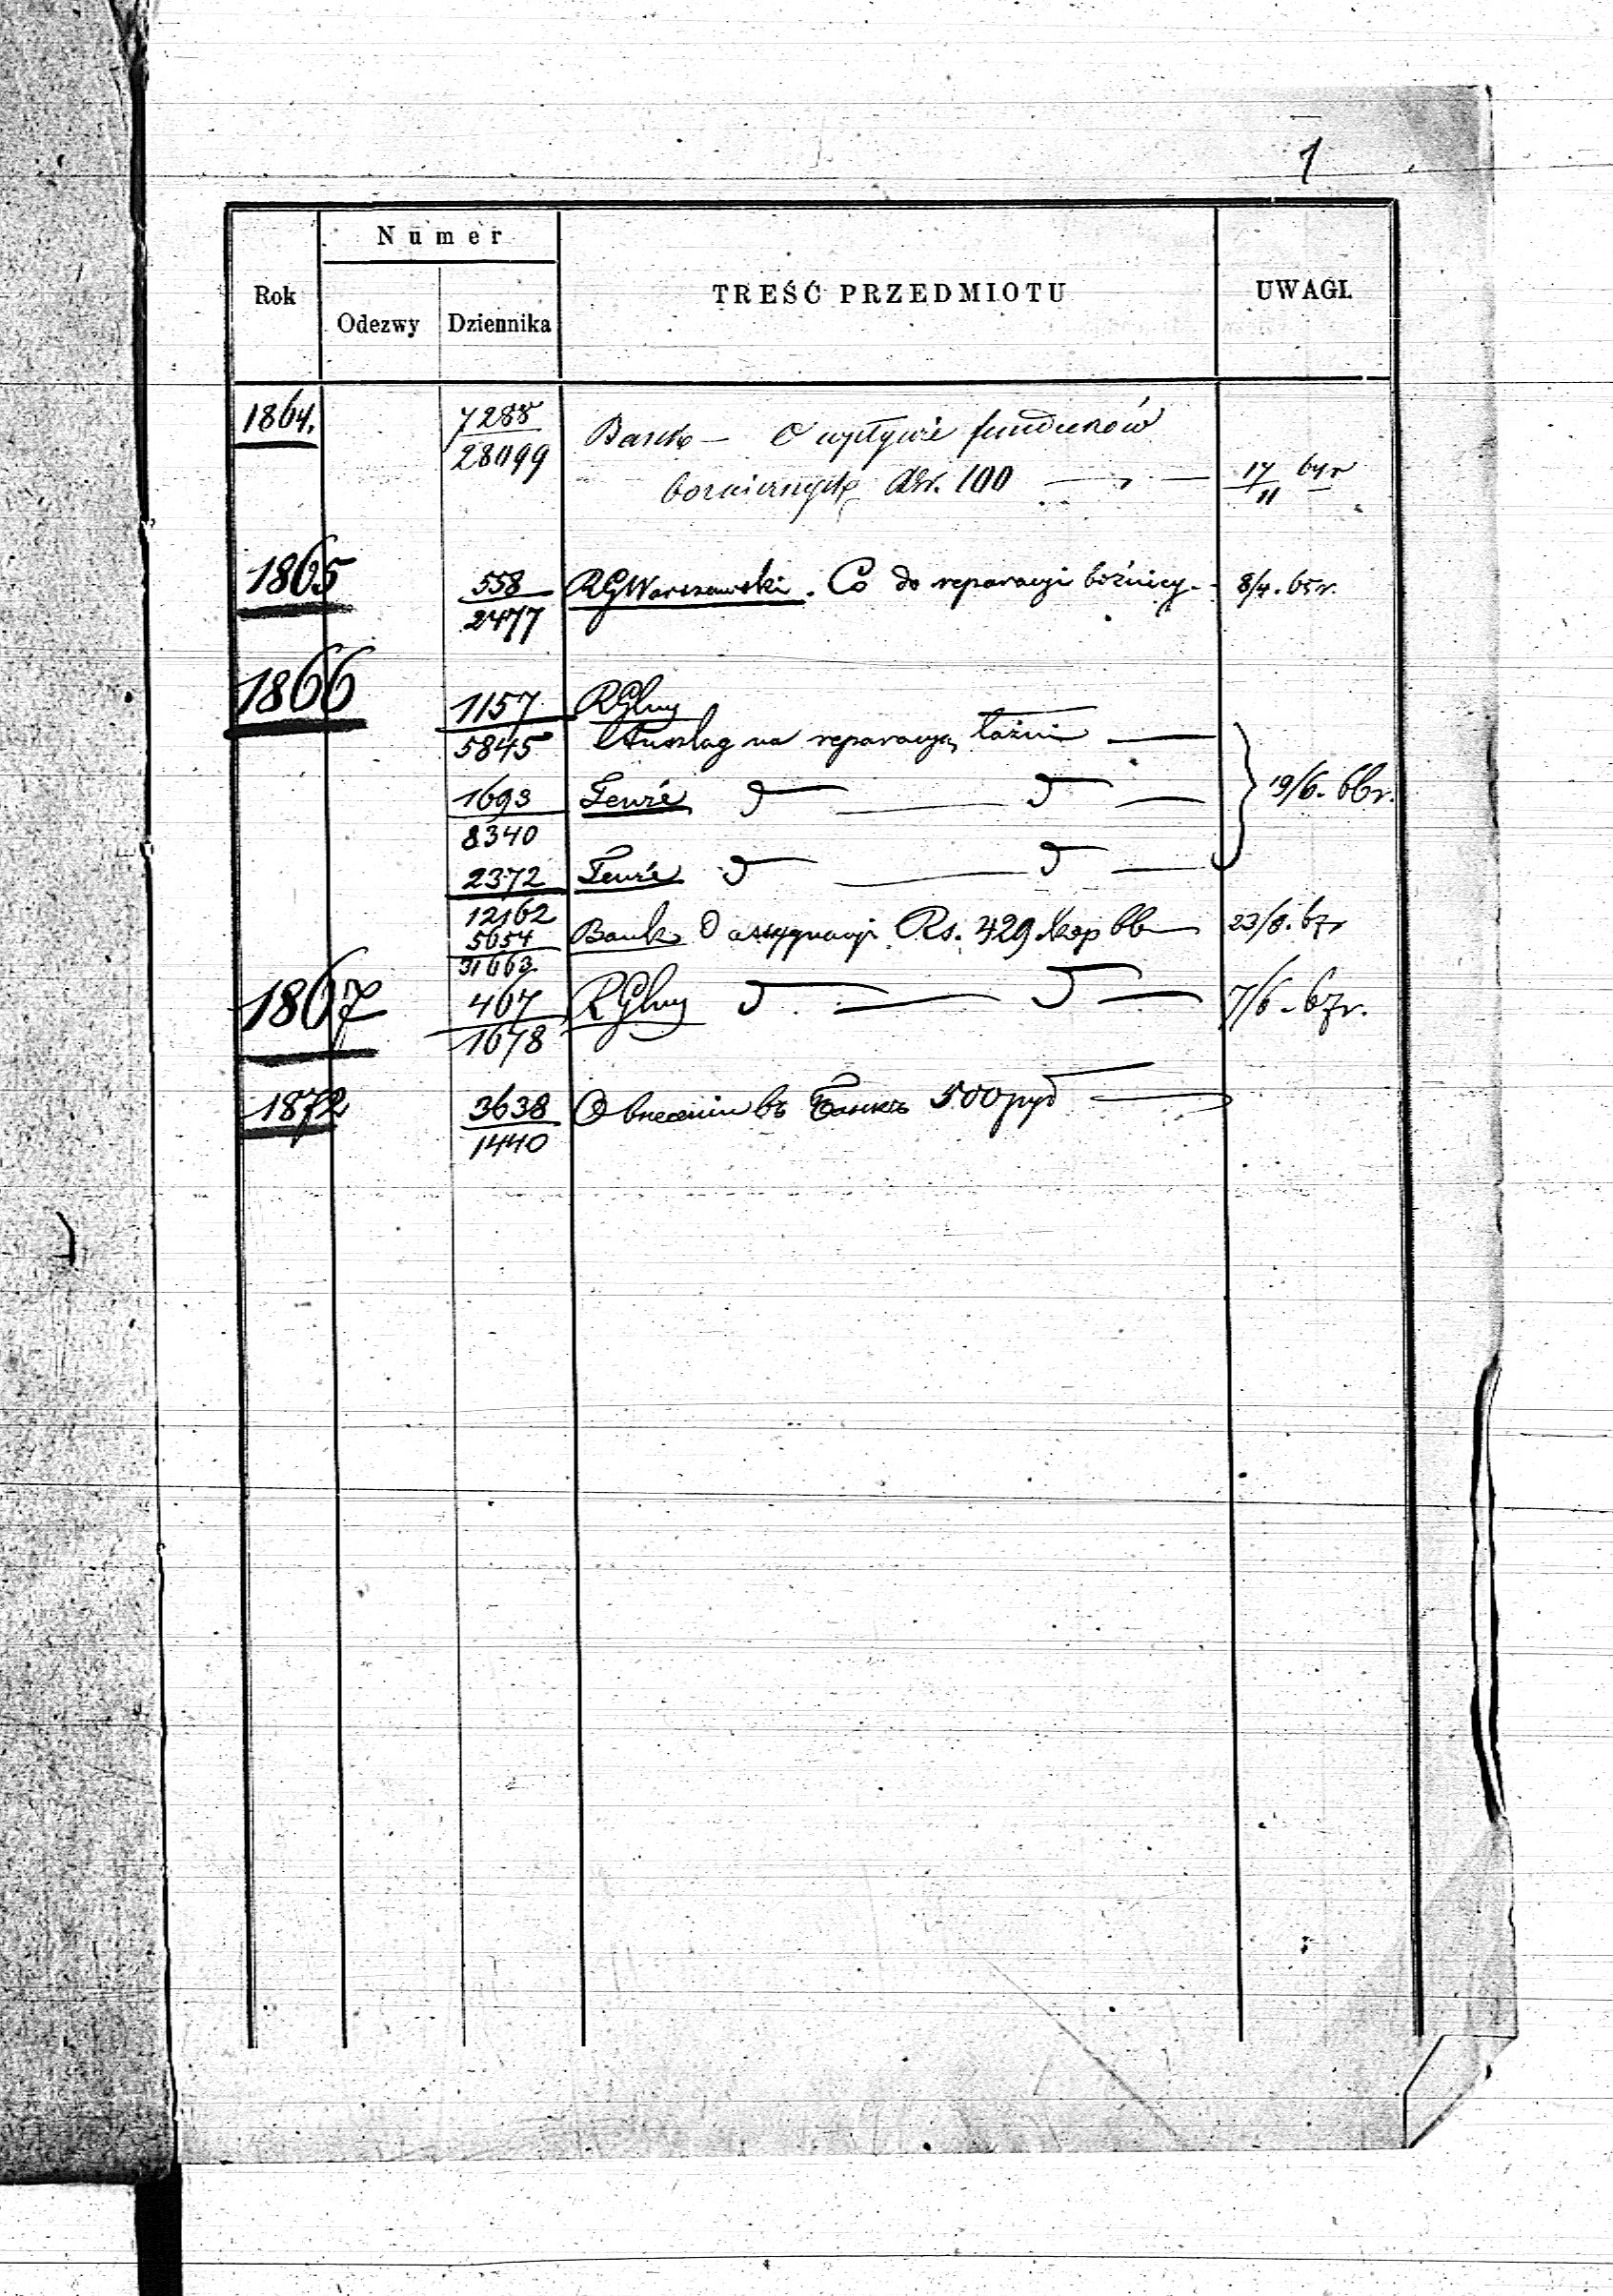 1
Numer
Rok
Odezwy
Dziennika
TREŚĆ PRZEDMIOTU
UWAGI.
1864.
7288
28099
Bank – O wpływie funduszów
bożniczych Rsr. 100
17/11 64r
1865
558
2477
RGWarszawski. Co do reparacyi bóźnicy
8/4. 65r.
1866
1157
5845
RGlny
Anszlag na reparacyą łaźni
1693
8340
Tenże
19/6. 66r.
2372
12162
Tenże
5654
31663
Bank O assygnacyi Rs. 429 kop 66
23/8. 67r
1867
467
1678
RGlny
7/6. 67r.
1872
3638
1440
О внесении въ Банкъ 500 руб